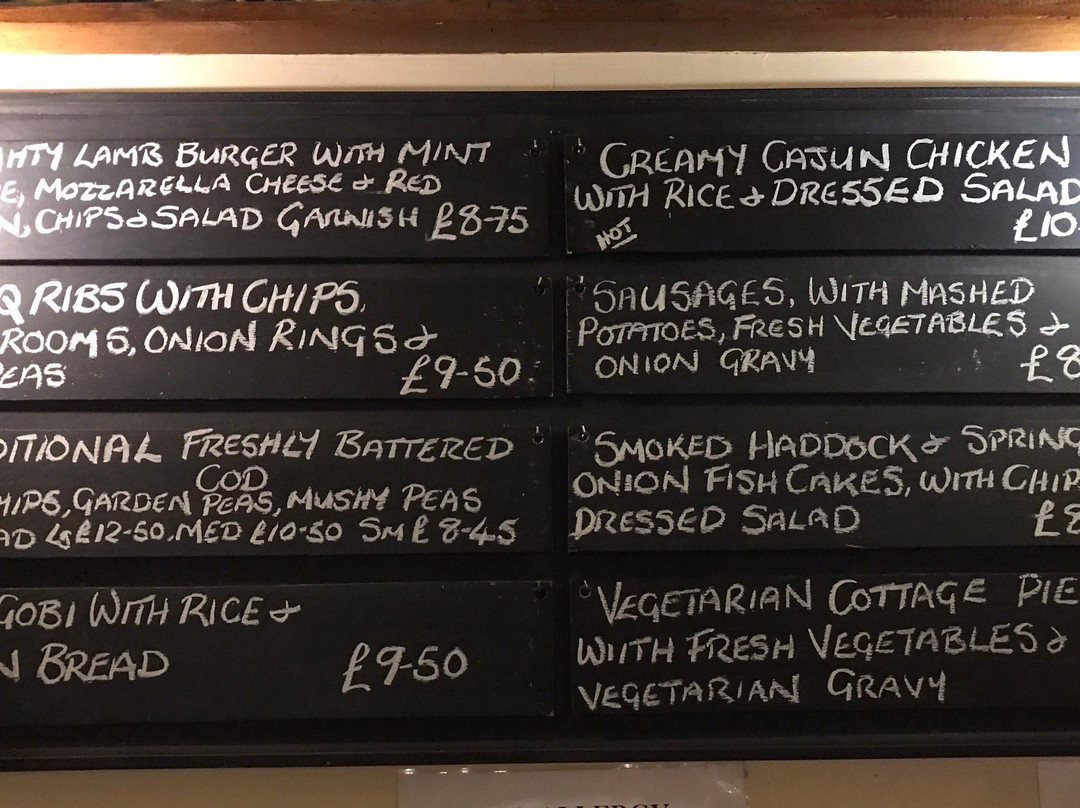 HTY LAMB BURGER WITH MINT
E, MOZZARELLA CHEESE & RED
N, CHIPS & SALAD GARNISH £8-75
Q RIBS WITH CHIPS,
ROOMS, ONION RINGS &
EAS £9-50
DITIONAL FRESHLY BATTERED
COD
HIPS, GARDEN PEAS, MUSHY PEAS
AD Lg £12-50. MED £10-50 SM £8-45
GOBI WITH RICE &
N BREAD £9-50
CREAMY CAJUN CHICKEN
WITH RICE & DRESSED SALAD
HOT £10
SAUSAGES, WITH MASHED
POTATOES, FRESH VEGETABLES &
ONION GRAVY £8
SMOKED HADDOCK & SPRING
ONION FISH CAKES, WITH CHIP
DRESSED SALAD £8
VEGETARIAN COTTAGE PIE
WITH FRESH VEGETABLES &
VEGETARIAN GRAVY
ALLERGY